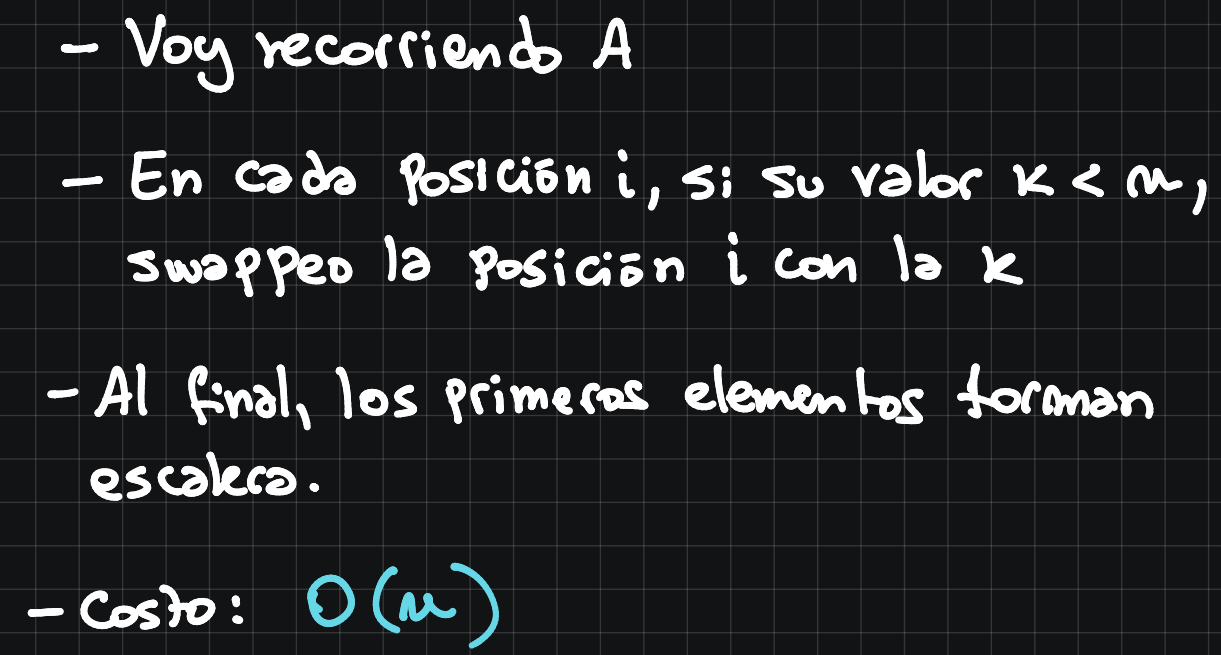 - Voy recorriendo A
- En cada posición i, si su valor k < n,
swappeo la posición i con la k
- Al final, los primeros elementos forman
escalera.
- Costo: O(n)